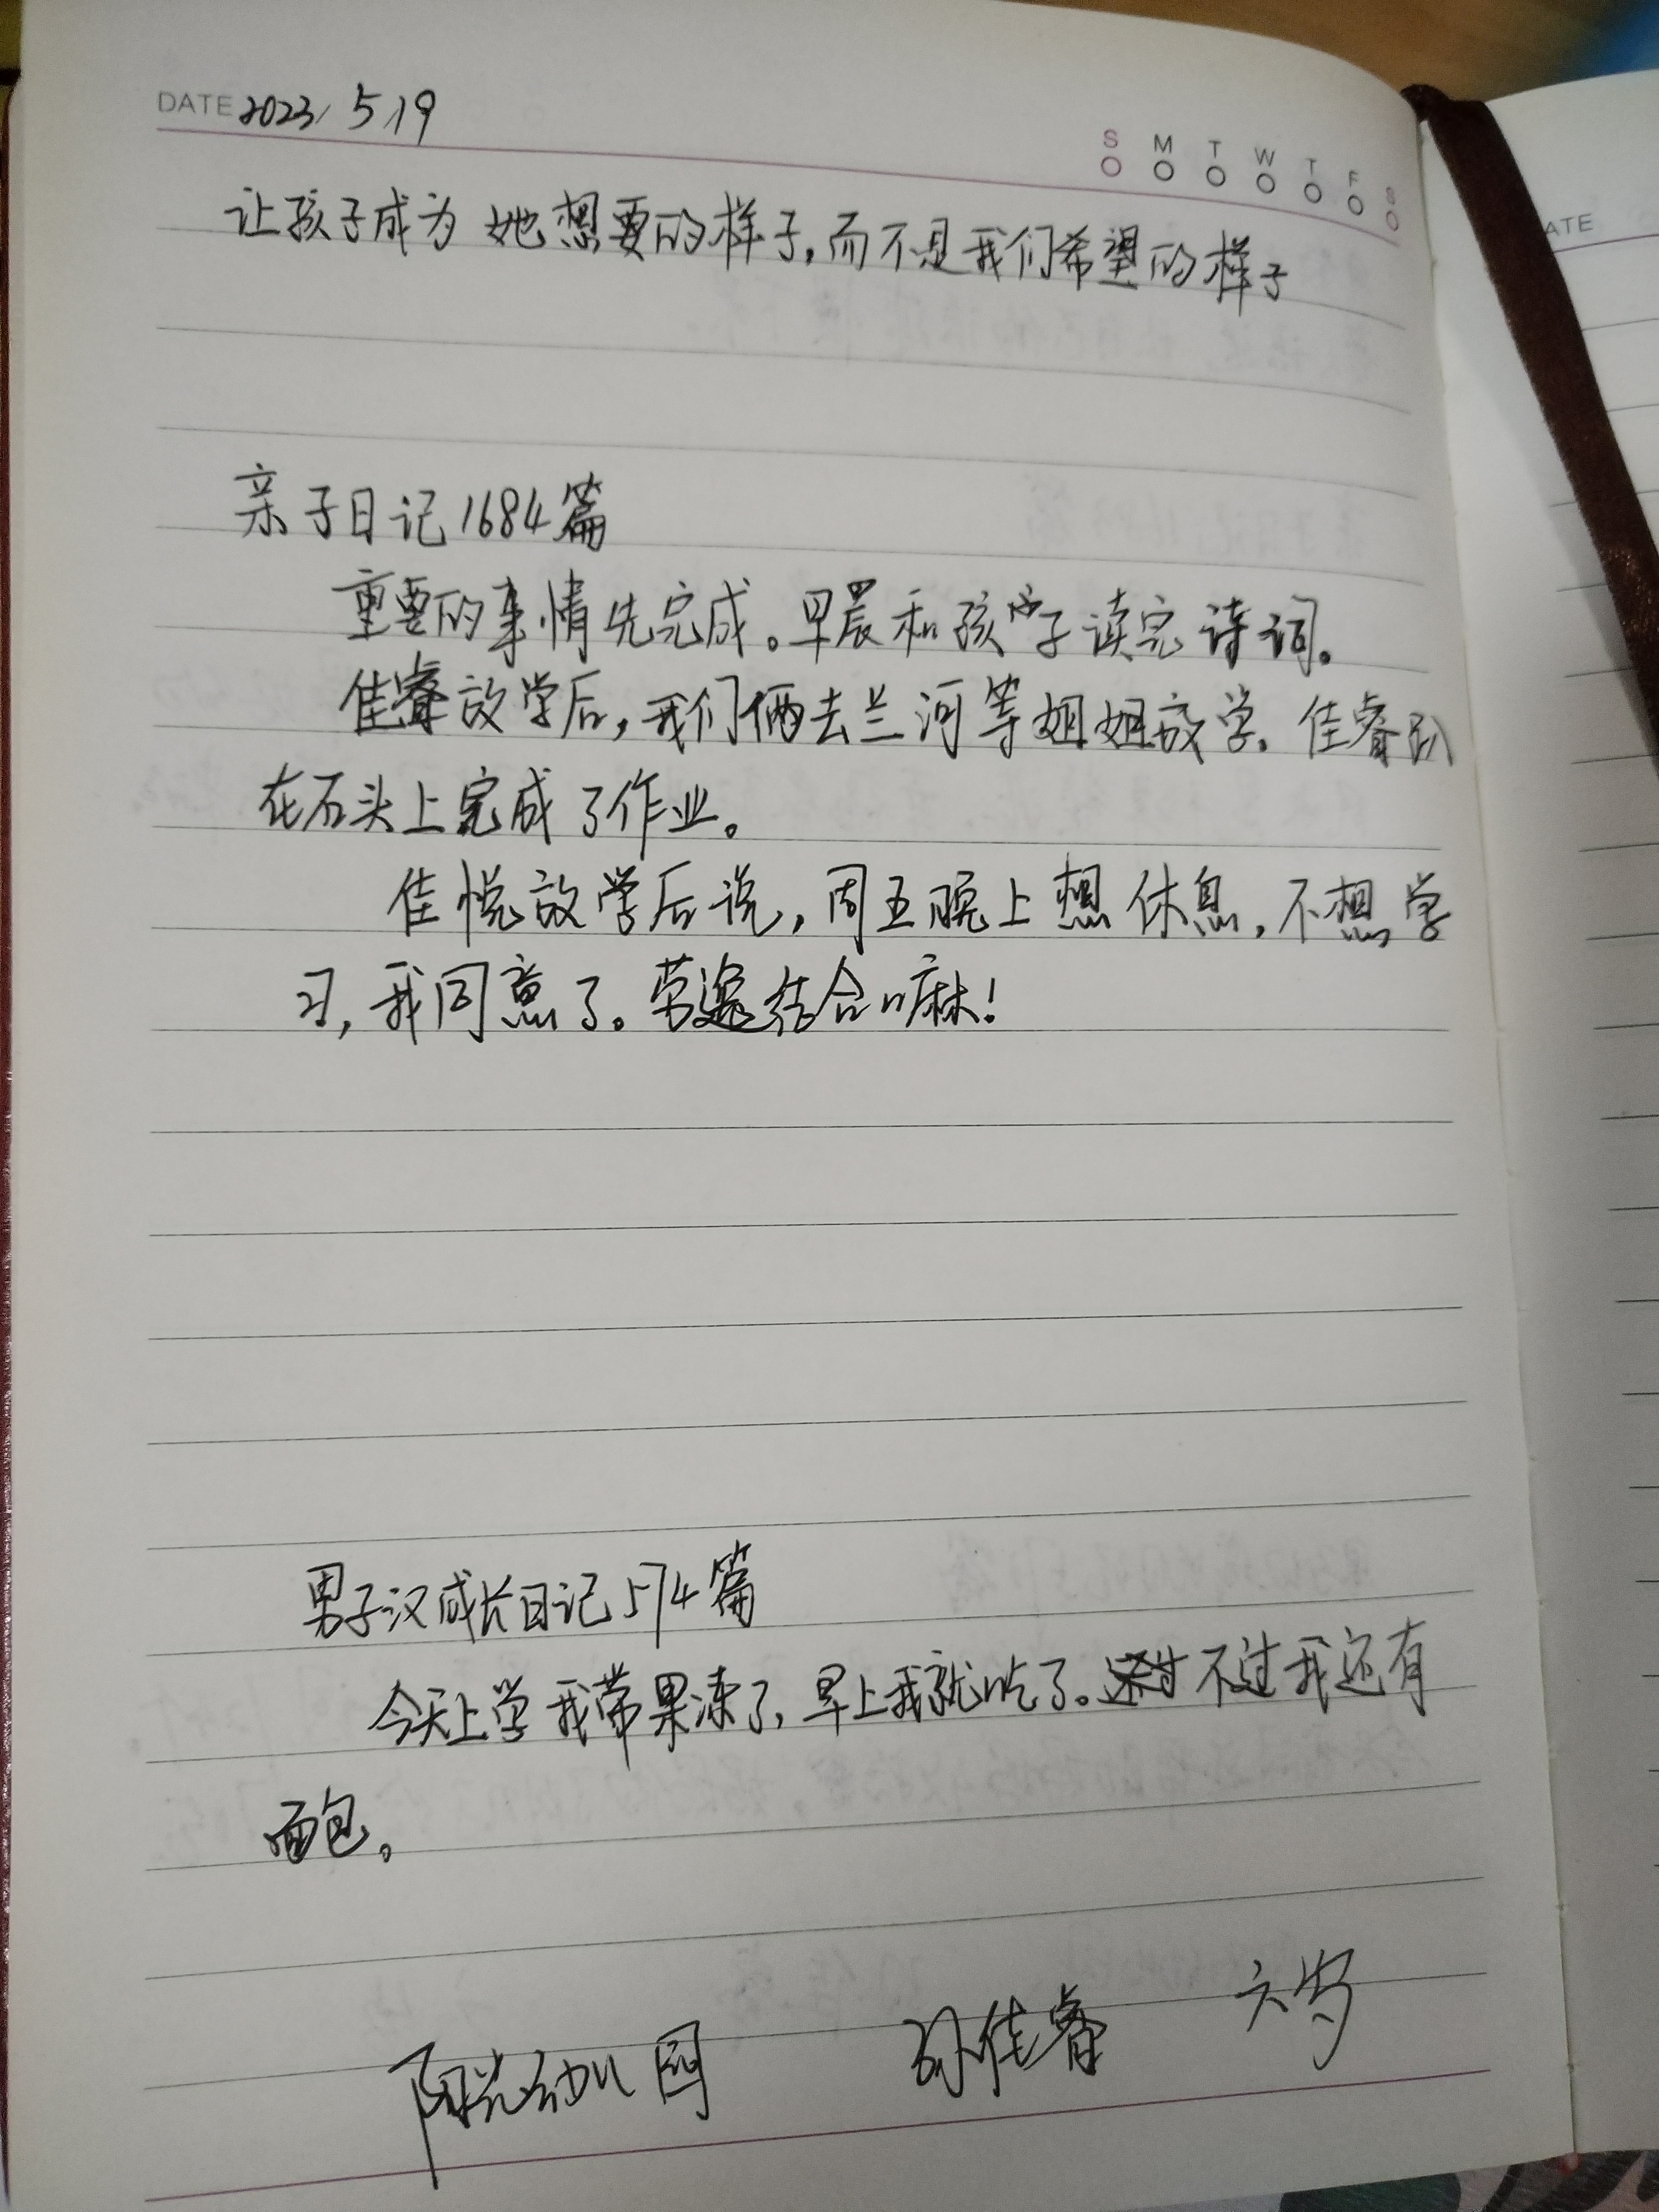 DATE 2023, 5, 19
S M T W T F S
让孩子成为她想要的样子,而不是我们希望的样子
ATE
亲子日记1684篇
重要的事情先完成。早晨和孩子读完诗词。
佳睿放学后,我们俩去兰河等姐姐放学,佳睿趴
在石头上完成了作业。
佳悦放学后说,周五晚上想休息,不想学
习,我同意了。劳逸结合嘛!
男子汉成长日记574篇
今天上学我带果冻了,早上我就吃了。不过我还有
面包。
阳光幼儿园 孙佳睿 六岁